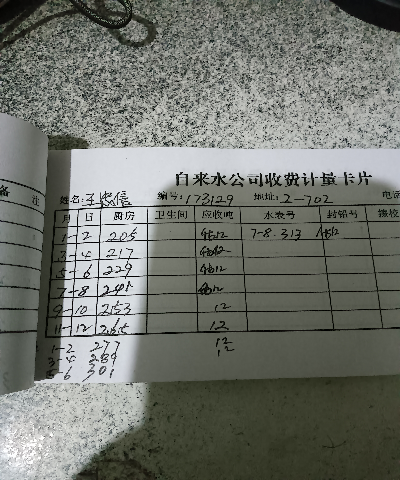 自来水公司收费计量卡片
备 注
姓名: 编号: 173129 地址: 2-702 电话
月 日 厨房 卫生间 应收吨 水表号 封铅号 接校
1-2 205 12 7-8.313
3-4 217
5-6 229 12
7-8 241
9-10 253 12
11-12 265 12
1-2 277 12
3-4 289 12
5-6 301